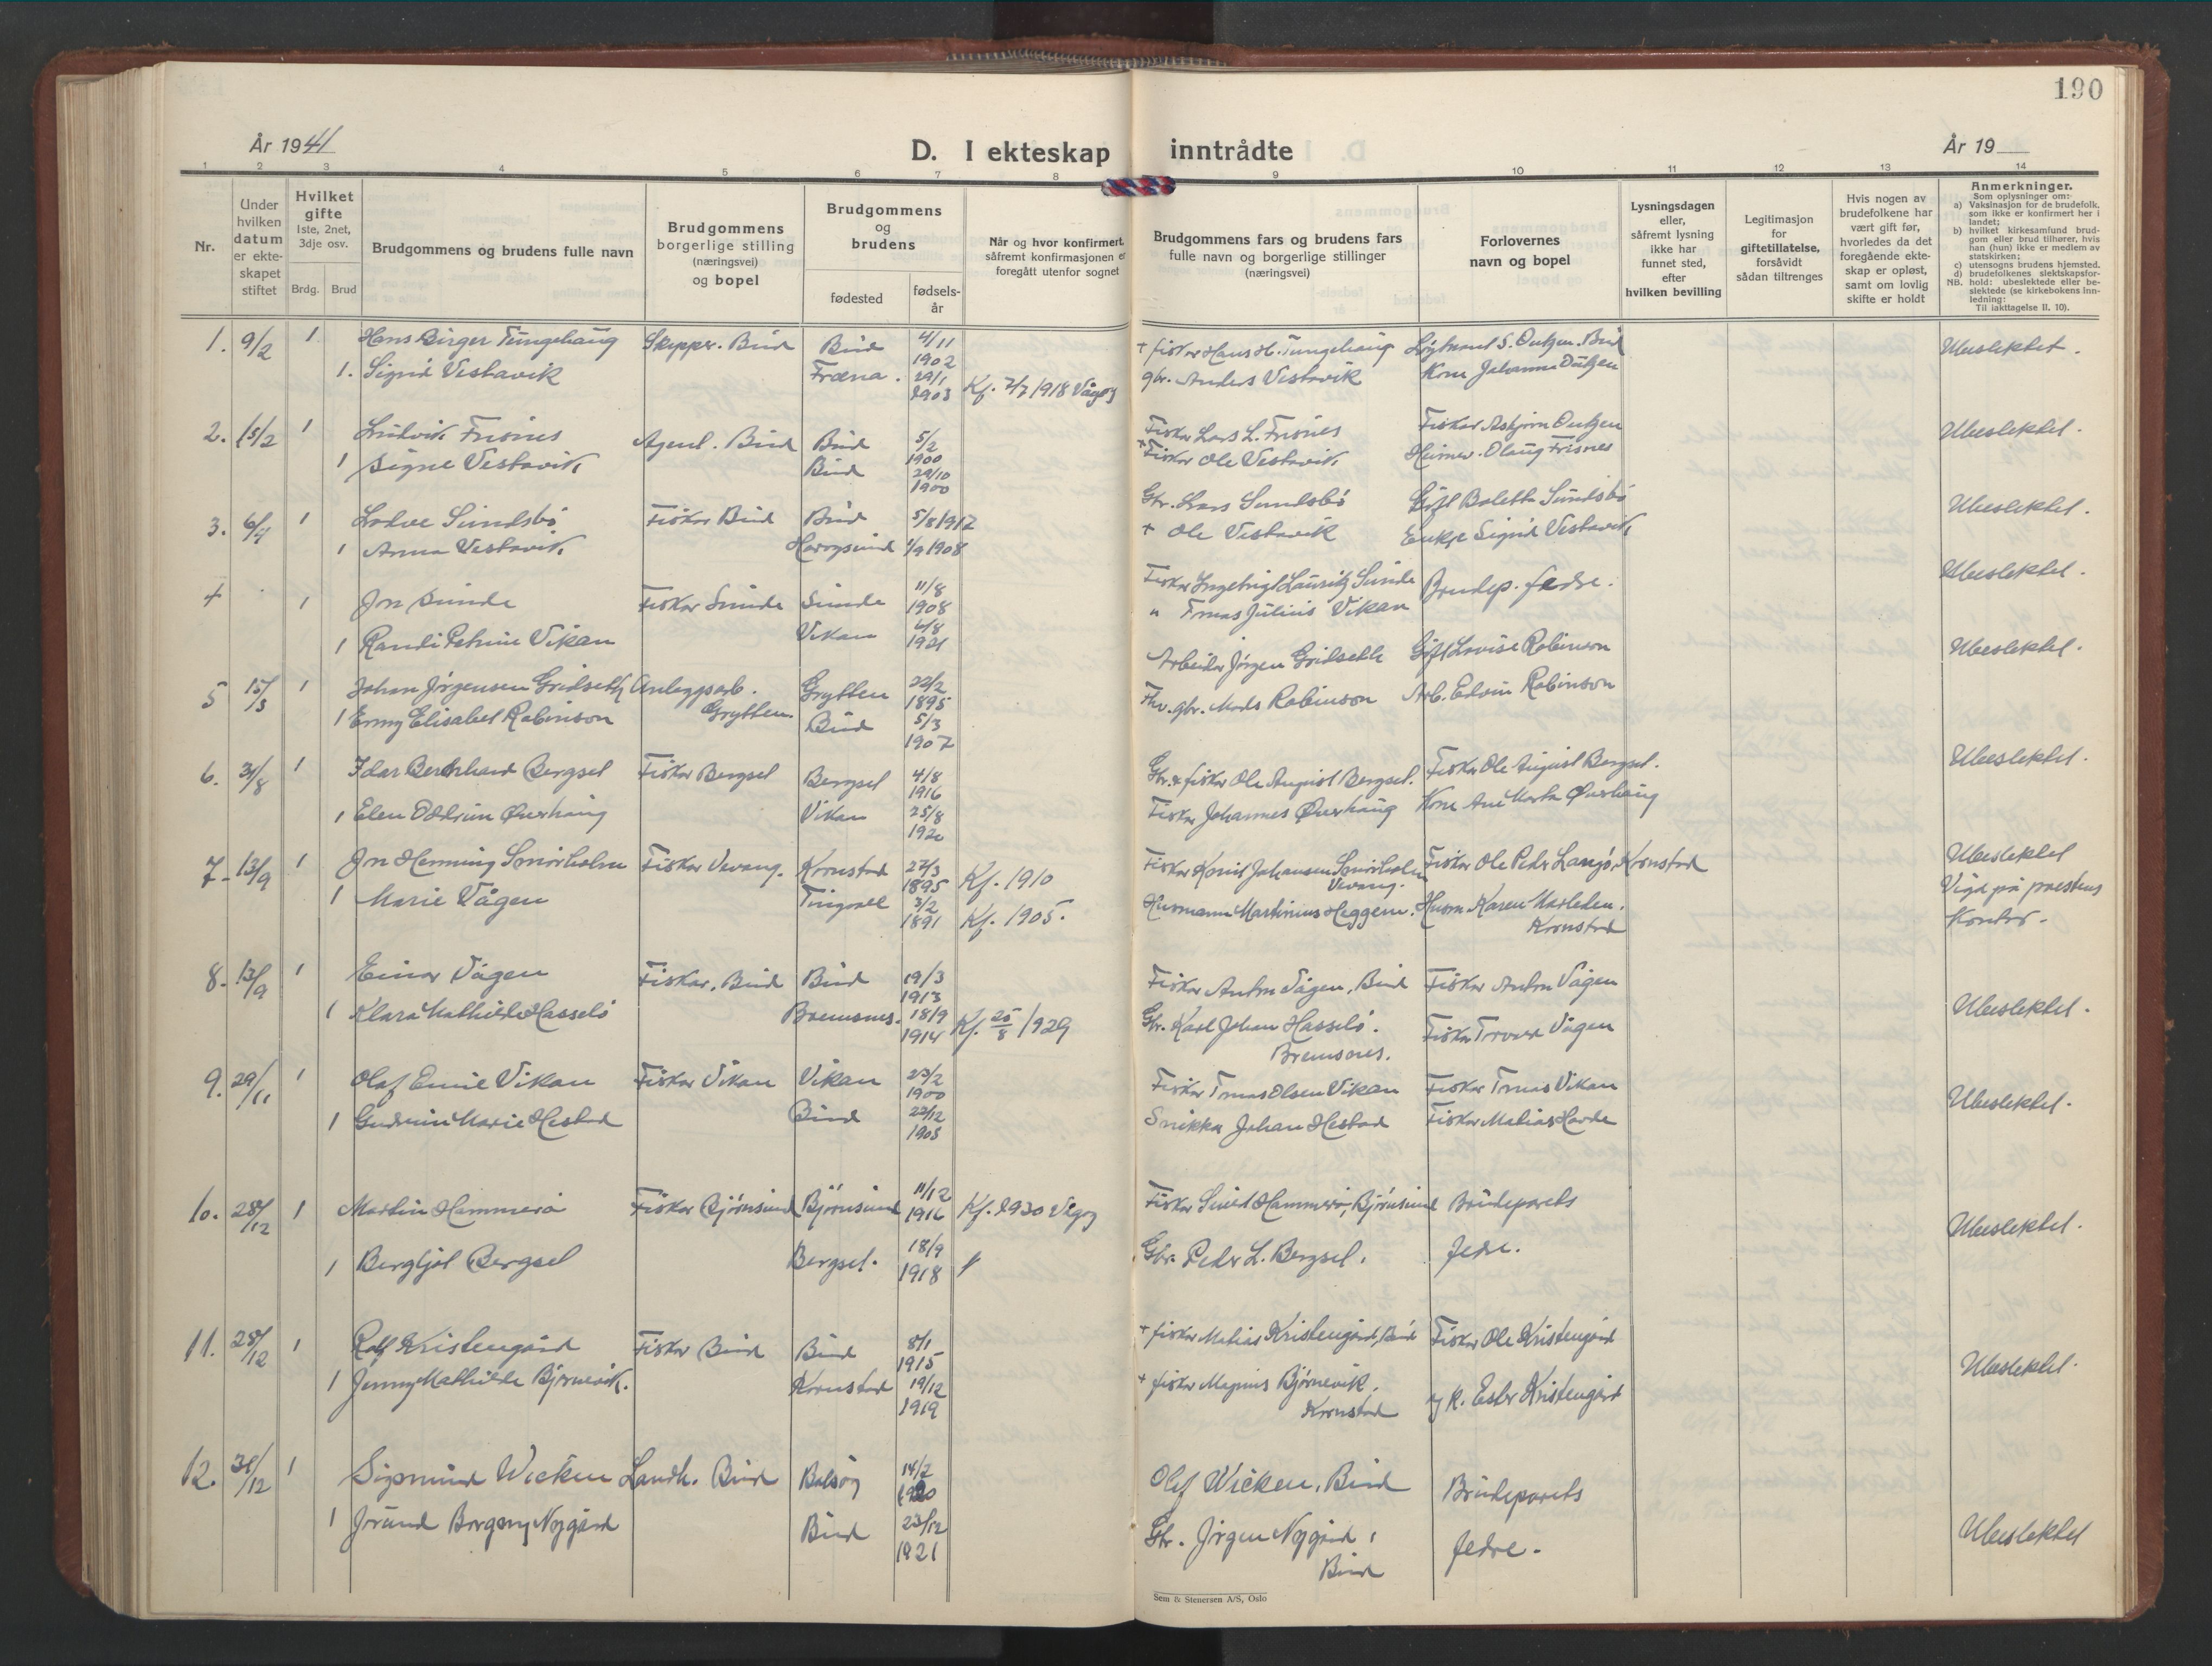 190
År 1941
D. I ekteskap inntrådte
År 19
1 2 3 4 5 6 7 8 9 10 11 12 13 14
Nr.
Under hvilken datum er ekteskapet stiftet
Hvilket gifte 1ste, 2net, 3dje osv.
Brdg. Brud
Brudgommens og brudens fulle navn
Brudgommens borgerlige stilling (næringsvei) og bopel
Brudgommens og brudens
fødested
fødselsår
Når og hvor konfirmert, såfremt konfirmasjonen er foregått utenfor sognet
Brudgommens fars og brudens fars fulle navn og borgerlige stillinger (næringsvei)
Forlovernes navn og bopel
Lysningsdagen eller, såfremt lysning ikke har funnet sted, efter hvilken bevilling
Legitimasjon for giftetillatelse, forsåvidt sådan tiltrenges
Hvis nogen av brudefolkene har vært gift før, hvorledes da det foregående ekteskap er opløst, samt om lovlig skifte er holdt
Anmerkninger.
Som oplysninger om:
a) Vaksinasjon for de brudefolk, som ikke er konfirmert her i landet;
b) hvilket kirkesamfund brudgom eller brud tilhører, hvis han (hun) ikke er medlem av statskirken;
c) utensogns brudens hjemsted.
d) brudefolkenes slektskapsforhold: ubeslektede eller beslektede (se kirkebokens innledning:
NB. Til iakttagelse II. 10).
1. 9/2 1 Hans Birger Tungehaug Skipper. Bud Bud 4/11 1902 + fiskar Hans H. Tungehaug Løytnant S. Outzen. Bud Ubeslektet.
1. Sigrid Vestavik Fræna. 29/1 1903 Kf. 7/7 1918 Vågøy gbr. Anders Vestavik Kone Johanna Outzen
2. 15/2 1 Ludvik Frisnes Agent. Bud Bud 5/2 1900 Fiskar Lars L. Frisnes Fiskar Asbjørn Outzen Ubeslektet.
1 Signe Vestavik Bud 29/10 1900 + Fiskar Ole Vestavik Heimev. Olaug Frisnes
3. 6/4 1 Lodve Sundsbø Fiskar Bud Bud 5/8 1917 Gbr. Lars Sundsbø Gift Boletta Sundsbø Ubeslektet.
1 Anna Vestavik Harøysund 1/9 1908 + Ole Vestavik Enkje Sigrid Vestavik
4 1 Jon Sunde Fiskar Sunde Sunde 11/8 1908 Fiskar Ingebrigt Lauritz Sunde Brudep. fedre. Ubeslektet.
1 Randi Petrine Vikan Vikan 6/8 1921 " Tomas Julius Vikan
5 15/5 1 Johan Jørgensen Gridseth Anleggsarb. Grytten. Grytten 22/2 1895 Arbeider Jørgen Gridseth Gift Lovise Robinson Ubeslektet.
1 Ermy Elisabet Robinson Bud 5/3 1907 Fhv. gbr. Mads Robinson Arb. Edvin Robinson
6. 31/8 1 Idar Bernhard Bergset Fiskar Bergset Bergset 4/8 1916 Gbr. & fiskar Ole August Bergset. Fiskar Ole August Bergset. Ubeslektet.
1 Elen Oddrun Øverhaug Vikan 25/8 1920 Fiskar Johannes Øverhaug Kone Ane Marta Øverhaug
7. 13/9 1 Jon Henning Smørholm Fiskar Vevang. Kornstad 27/3 1895 Kf. 1910 Fiskar Kornil Johansen Smørholm Vevang. Fiskar Ole Peder Langø, Kornstad Ubeslektet
1 Marie Vågen Tingvoll 3/2 1891 Kf. 1905. Husmann Martinius Heggem. Husm. Karen Harleken. Kornstad Vigd på prestens kontor.
8. 13/9 1 Einar Vågen Fiskar. Bud Bud 19/3 1913 Fiskar Anton Vågen, Bud Fiskar Anton Vågen
1 Klara Mathilde Hasselø Bremsnes. 18/9 1914 Kf. 25/8 1929 Gbr. Karl Johan Hasselø. Bremsnes. Fiskar Torvald Vågen Ubeslektet.
9. 29/11 1 Olaf Emil Vikan Fiskar Vikan Vikan 23/2 1900 Fiskar Tomas Olsen Vikan Fiskar Tomas Vikan Ubeslektet.
1 Gudrun Marie Hestad Bud 22/12 1905 Snikkar Johan Hestad Fiskar Matias Horde
10. 28/12 1 Martin Hammerø Fiskar Bjørnsund Bjørnsund 11/12 1916 Kf. 1930 Vågøy Fiskar Sivert Hammerø, Bjørnsund Brudeparets Ubeslektet.
1 Bergljot Bergset Bergset. 18/9 1918 Gbr. Peder L. Bergset. fedre.
11. 28/12 1 Rolf Kristengård Fiskar Bud Bud 8/1 1915 + fiskar Matias Kristengård, Bud Fiskar Ole Kristengård Ubeslektet.
1 Jenny Mathilde Bjørnevik. Kornstad 19/12 1919 + fiskar Magnus Bjørnevik. Kornstad og k. Ester Kristengård
12. 31/12 1 Sigmund Wicken Landh. Bud Bolsøy 14/2 1920 Olaf Wicken, Bud Brudeparets
1 Jorund Borgny Nygård Bud 23/12 1921 Gbr. Jørgen Nygård, Bud fedre. Ubeslektet
Sem & Stenersen A/S, Oslo